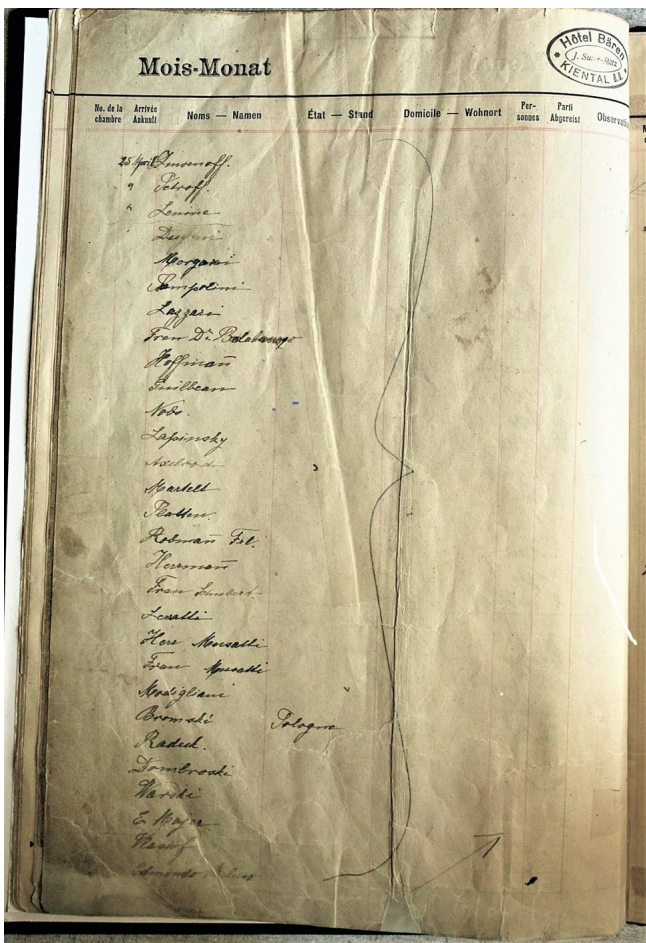 Hôtel Bären
KIENTAL
Mois-Monat
No. de la chambre Arrivée Ankunft Noms — Namen État — Stand Domicile — Wohnort Per-sonnes Parti Abgereist
25 April Zinvenoff.
" Petroff.
" Lenine
Morgari
Lazzari
Frau Dr Balabanoff
Hoffmañ
Guilbeau
Nobs.
Lapinsky
Axelrod
Martett
Platten.
Robmañ Frl.
Herrmañ
Frau
Herr Musatti
Frau Musatti
Modigliani
Bronski Pologne
Radeck.
Dombroski
Warski
E. Meyer
Edmondo